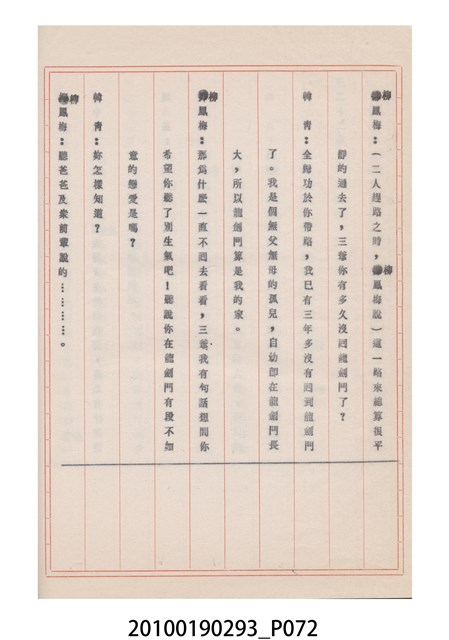 柳鳳梅：（二人趕路之時，柳鳳梅說）這一路來總算很平
靜的過去了，三爺你有多久沒回龍劍門了？
韓　青：全歸功於你帶路，我已有三年多沒有回到龍劍門
了。我是個無父無母的孤兒，自幼即在龍劍門長
大，所以龍劍門算是我的家。
柳鳳梅：那為什麼一直不回去看看，三爺我有句話想問你
希望你聽了別生氣吧！聽說你在龍劍門有段不如
意的戀愛是嗎？
韓　青：妳怎樣知道？
柳鳳梅：聽爸爸及眾前輩說的…………。
20100190293_P072